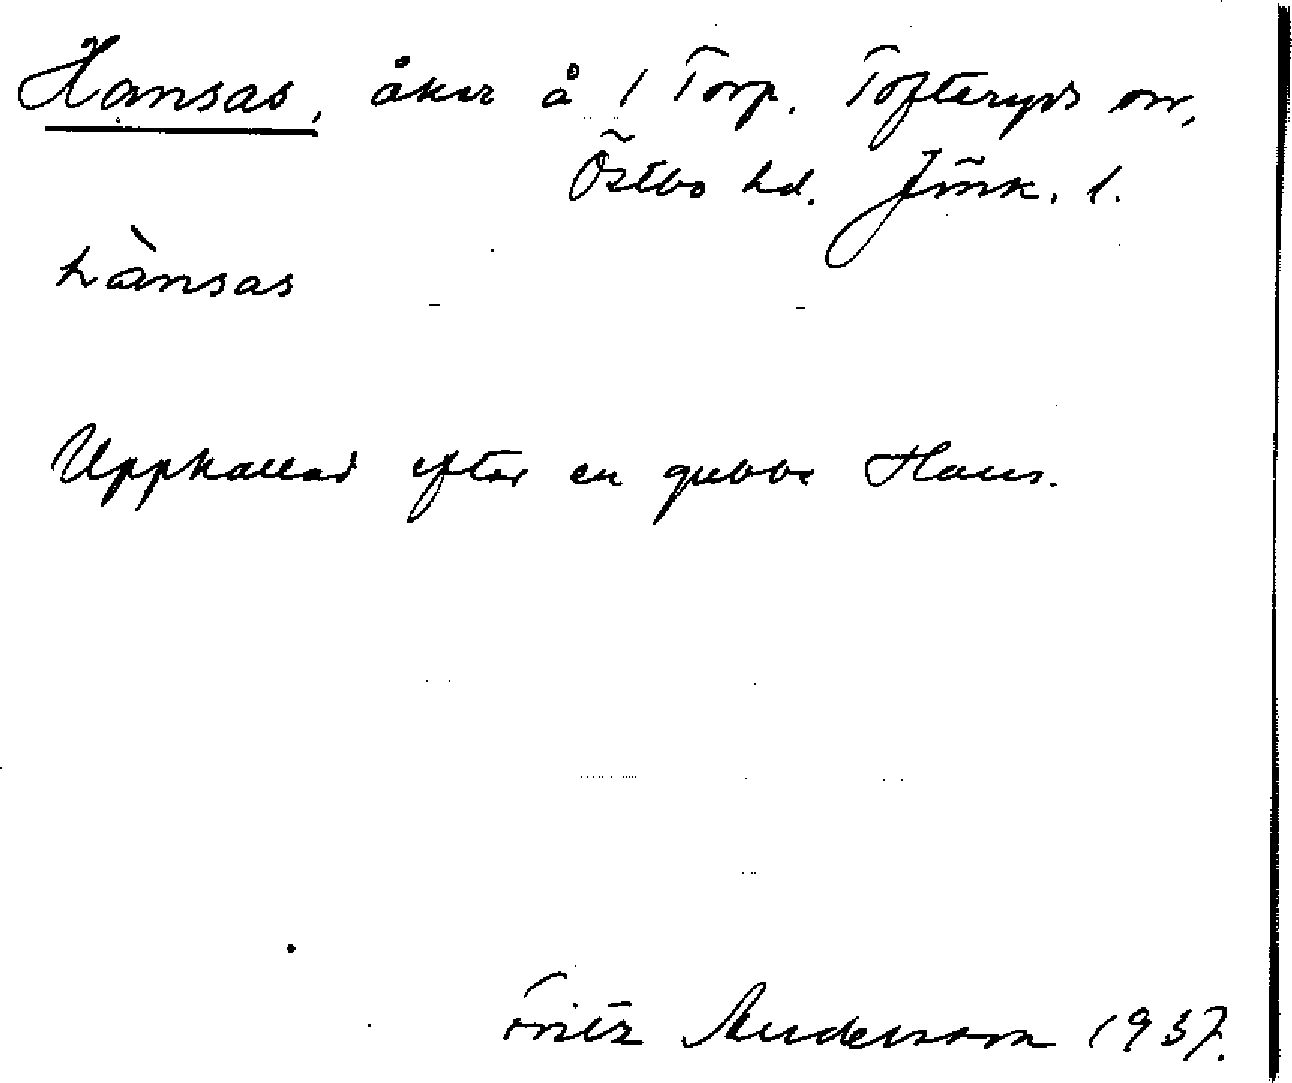 Hansas, åker å 1 Torp. Tofteryds sn,
Östbo hd. Jönk. l.
hànsas
Uppkallad efter en gubbe Hans.
Fritz Andersson 1937.